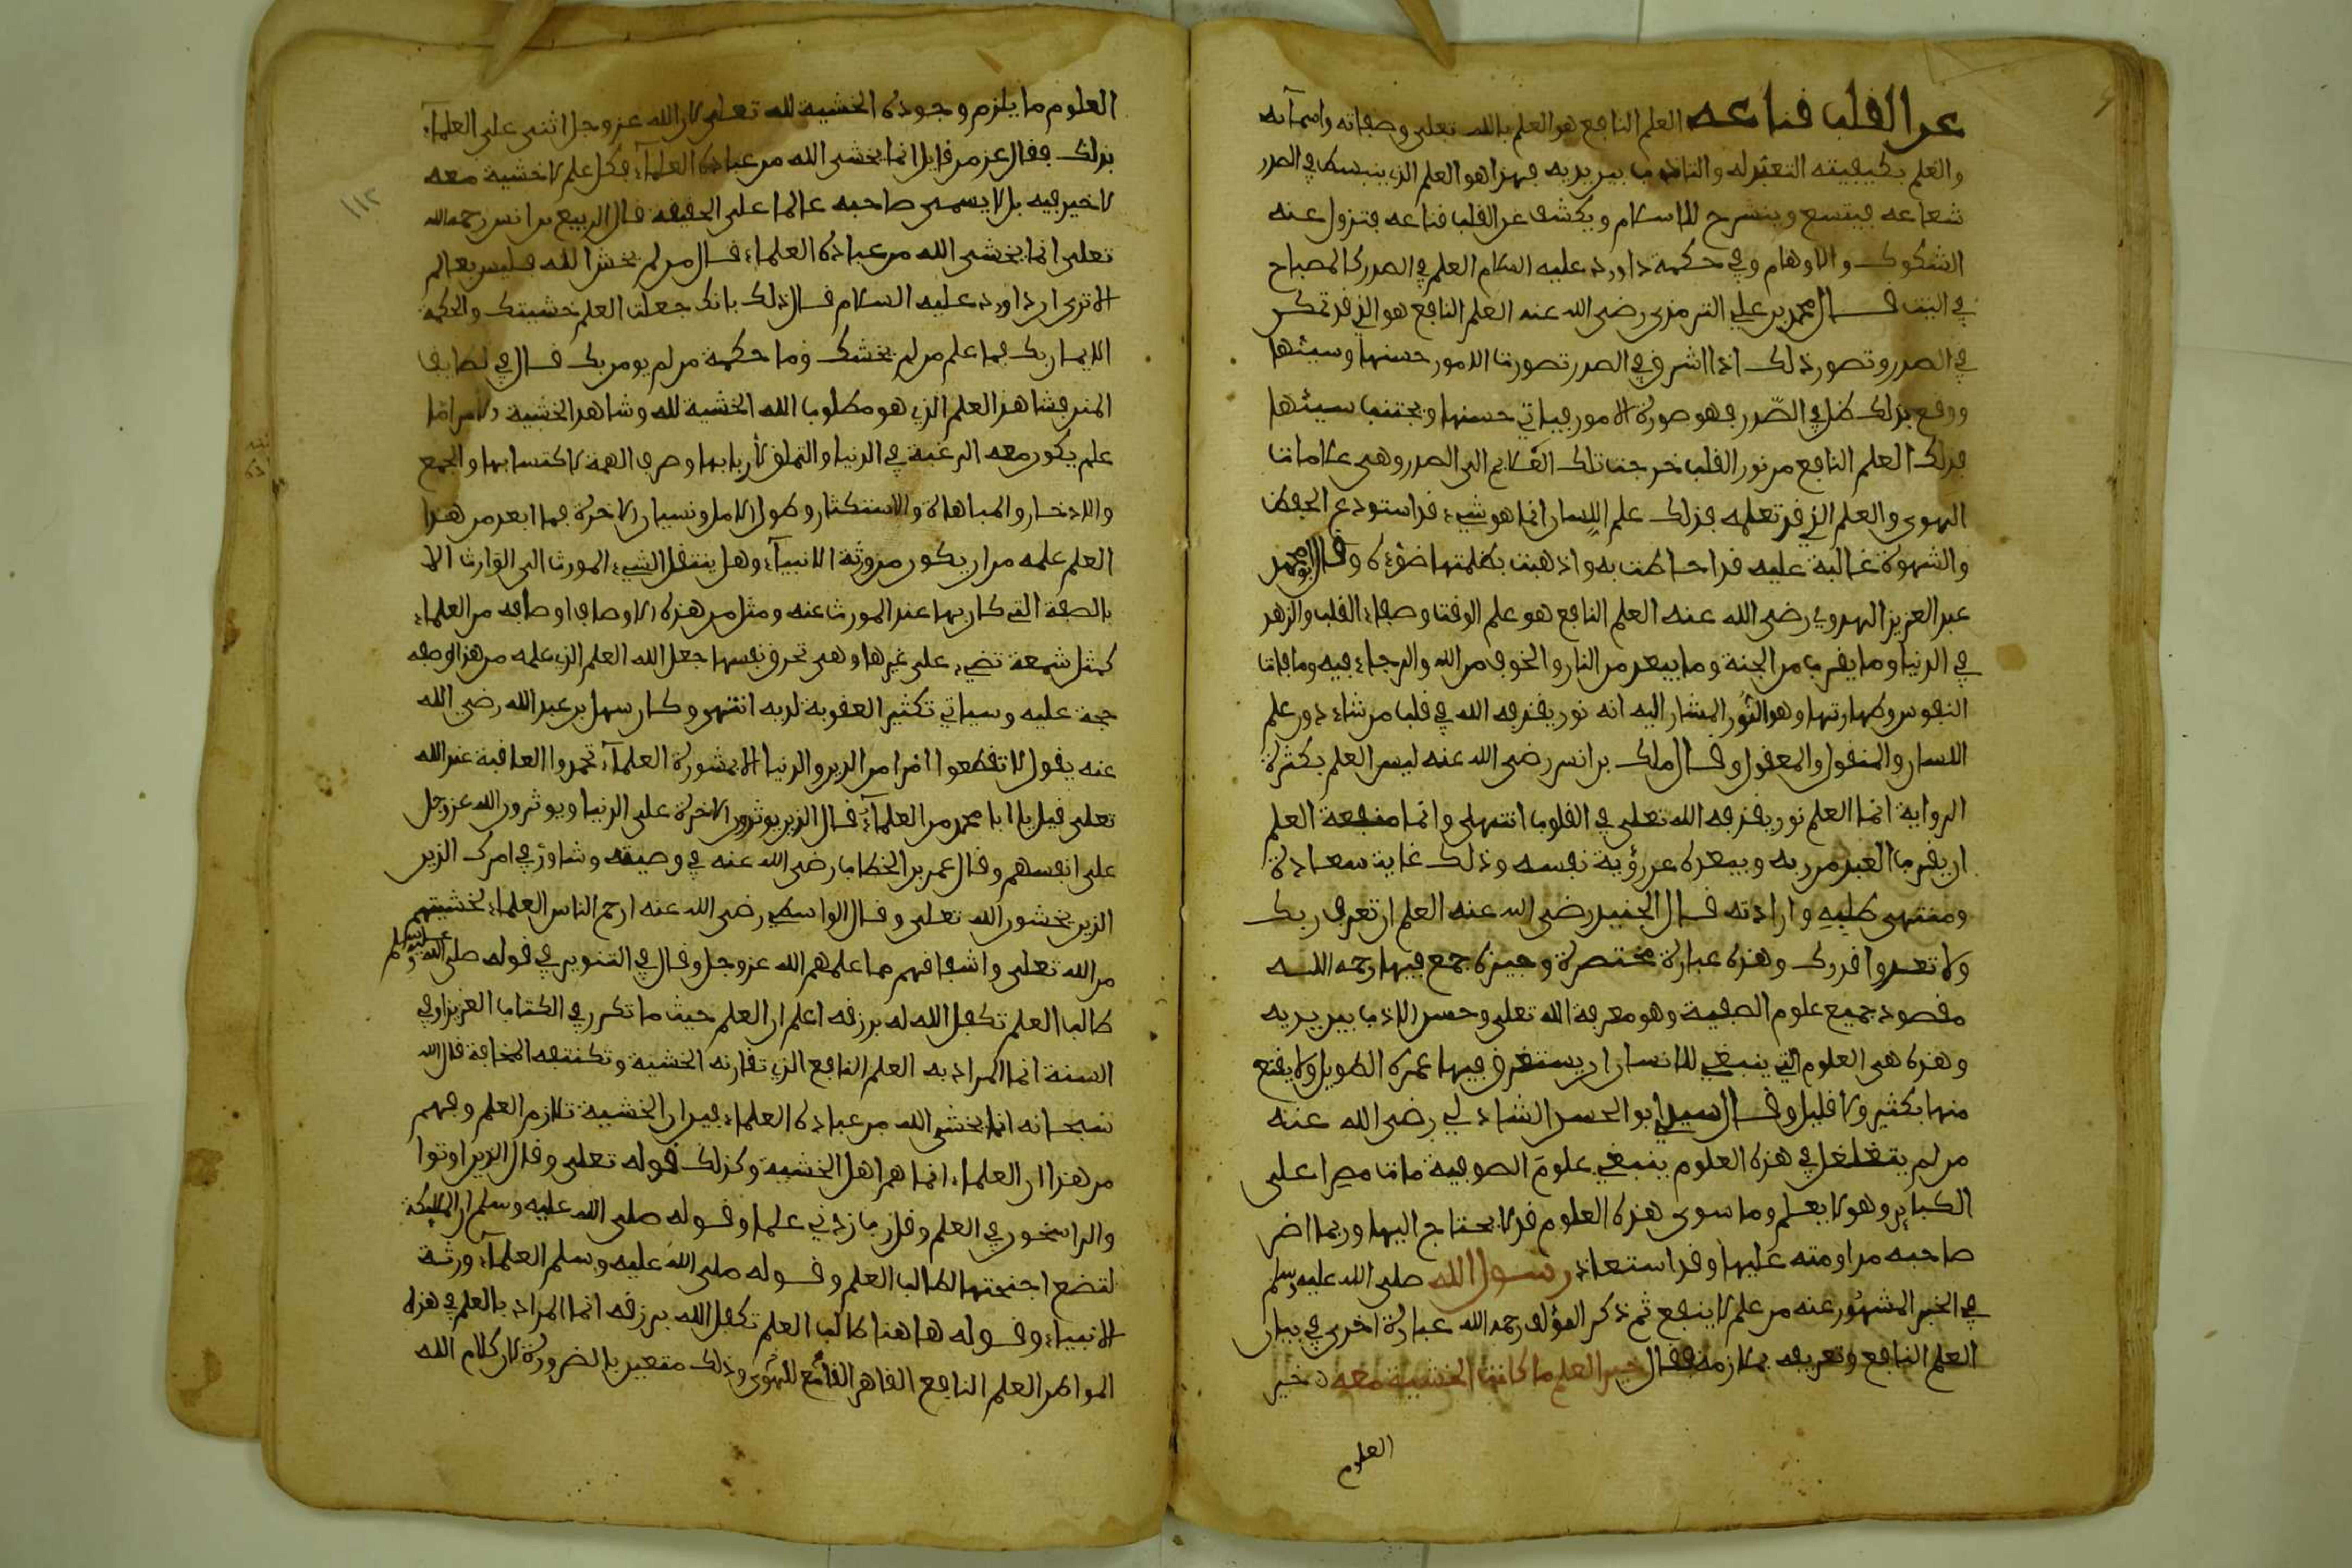 عن القلب قناعه العلم النافع هو العلم بالله تعلى وصفاته واسمآئه
والعلم بكيفيته التعبد له والتادب بين يديه فهذا هو العلم الذي ينبسط في الصدر
شعاعه فيتسع وينشرح للاسلام ويكشف عن القلب قناعه فتزول عنه
الشكوك والاوهام وفي حكمة داوود عليه السلام العلم في الصدر كالمصباح
في البيت قال محمد بن علي الترمذي رضى الله عنه العلم النافع هو الذي قد تمكن
في الصدر وتصور ذلك اذا اشرق في الصدر تصورت الامور حسنها وسيئها
ووقع بذلك ظل في الصّدر فهو صورة الامور فياتي حسنها ويجتنب سيئها
فذلك العلم النافع من نور القلب خرجت تلك العلايم الى الصدر وهى علامات
الهوى والعلم الذي قد تعلمه فذلك علم اللسان انما هو شيء قد استودع الحفظ
والشهوة غالبة عليه قد احاطت به واذهبت بظلمتها ضوءه وقال ابو محمد
عبد العزيز المهدوي رضى الله عنه العلم النافع هو علم الوقت وصفاء القلب والزهد
في الدنيا وما يقرب من الجنة وما يبعد من النار والخوف من الله والرجاء فيه وءافات
النفوس وطهارتها وهو النور المشار اليه انه نور يقذفه الله في قلب من شاء دون علم
اللسان والمنقول والمعقول وقال ملك بن انس رضى الله عنه ليس العلم بكثرة
الرواية انما العلم نور يقذفه الله تعلى في القلوب انتهى وانما منفعة العلم
ان يقرب العبد من ربه ويبعده عن رؤية نفسه وذلك غاية سعادة
ومنتهى طلبه وارادته قال الجنيد رضى الله عنه العلم ان تعرف ربك
ولا تعدوا قدرك وهذه عبارة مختصرة وجيزة جمع فيها رحمه الله
مقصود جميع علوم الصفية وهو معرفة الله تعلى وحسن الادب بين يديه
وهذه هى العلوم التي ينبغي للانسان ان يستغرق فيها عمره الطويل ولا يقنع
منها بكثير ولا قليل وقال سيدي ابو الحسن الشاذلي رضى الله عنه
من لم يتغلغل في هذه العلوم ينبغي علوم الصوفية مات مصرا على
الكبائر وهو لا يعلم وما سوى هذه العلوم قد لا يحتاج اليها وربما اضر
صاحبه مداومته عليها وقد استعاذ رسول الله صلى الله عليه وسلم
في الخبر المشهور عنه من علم لا ينفع ثم ذكر المؤلف رحمه الله عبارة اخرى في بيان
العلم النافع وتعريفه بملازمة فقال خير العلم ما كانت الخشية معه خير
العلوم
العلوم ما يلزم وجوده الخشية لله تعلى لان الله عز وجل اثنى على العلماء
بذلك فقال عز من قايل انما يخشى الله من عباده العلمآء فكل علم لا خشية معه
لا خير فيه بل لا يسمى صاحبه عالما على الحقيقة قال الربيع بن انس رحمه الله
تعلى انما يخشى الله من عباده العلماء قال من لم يخش الله فليس بعالم
الا ترى ان داوود عليه السلام قال ذلك بانك جعلت العلم خشيتك والحكمة
الايمان بك فما علم من لم يخشك وما حكمة من لم يومن بك قال في لطايف
المنن فشاهد العلم الذي هو مطلوب الله الخشية لله وشاهد الخشية الامر اما
علم يكون معه الرغبة في الدنيا والتملق لأربابها وصرف الهمة لاكتسابها والجمع
والادخار والمباهاة والاستكثار وطول الامل ونسيان الاخرة فما ابعد من هذا
العلم علمه من ان يكون من ورثة الانبيآء وهل ينتقل الشيء المورث الى الوارث الا
بالصفة التي كان بها عند المورث عنه ومثل من هذه الاوصاف اوصافه من العلماء
كمثل شمعة تضيء على غيرها وهي تحرق نفسها جعل الله العلم الذي علمه من هذا وصفه
حجة عليه وسياتي تكثير العقوبة لديه انتهى وكان سهل بن عبد الله رضي الله
عنه يقول لا تقطعوا امرا من الدين والدنيا الا بمشورة العلمآء تحمدوا العافبة عند الله
تعلى قيل يا ابا محمد من العلمآء قال الذين يوثرون الاخرة على الدنيا ويوثرون الله عز وجل
على انفسهم وقال عمر بن الخطاب رضى الله عنه في وصيته وشاور في امرك الذين
الذين يخشون الله تعلى وقال الواسطي رضى الله عنه ارحم الناس العلماء لخشيتهم
من الله تعلى واشفاقهم مما علمهم الله عز وجل وقال في التنوير في قوله صلى الله عليه وسلم
طالب العلم تكفل الله له برزقه اعلم ان العلم حيث ما تكرر في الكتاب العزيز او في
السنة انما المراد به العلم النافع الذي تقارنه الخشية وتكتنفه المخافة قال الله
سبحانه انما يخشى الله من عباده العلماء فبين ان الخشية تلازم العلم وفهم
من هذا ان العلماء انما هم اهل الخشية وكذلك قوله تعلى وقال الذين اوتوا
والراسخون في العلم وقل رب زدني علما وقوله صلى الله عليه وسلم ان الملايكة
لتضع اجنحتها لطالب العلم وقوله صلى الله عليه وسلم العلمآء ورثة
الانبياء وقوله هاهنا طالب العلم تكفل الله برزقه انما المراد بالعلم في هذه
المواطن العلم النافع القاهر القامع للهوى وذلك متعين بالضرورة لان كلام الله
١١٢